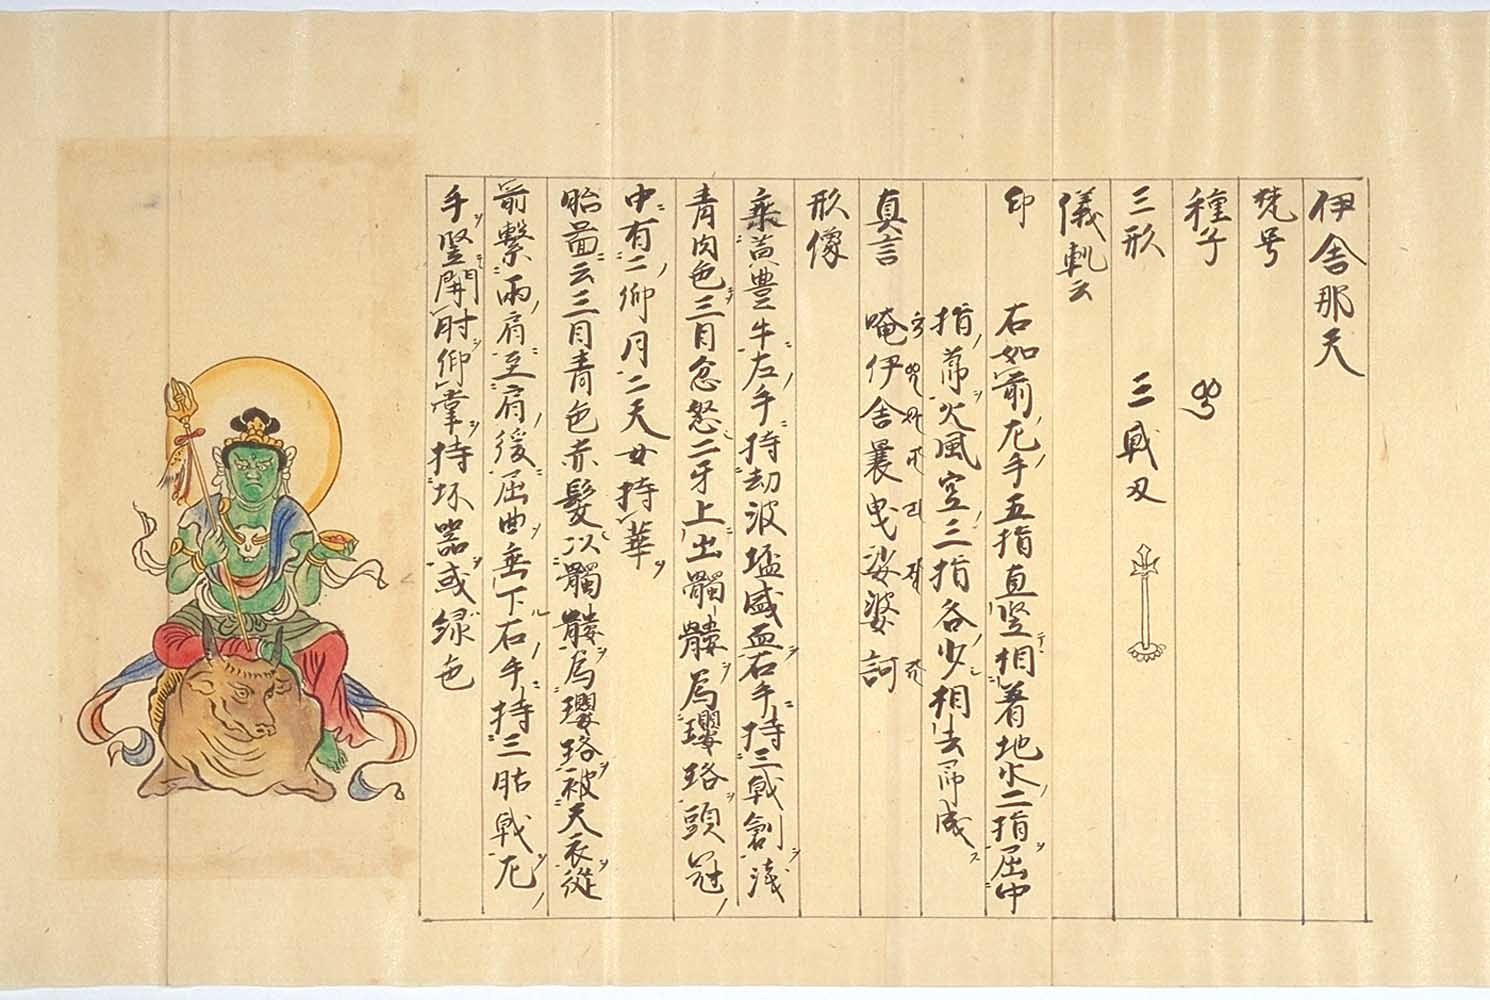 伊舎那天
梵号
種子
三形 三戟刃
儀軌云
印 右如前左手五指直竪相著地水二指屈中
指第火風空三指各少相去即成
真言 唵伊舎曩曳娑婆訶
形像
乗黄豊牛左手持劫波坯盛血右手持三戟創淺
青肉色三目忿怒二牙上出髑髏為瓔珞頭冠
中有二仰月二天女持華
胎啚云三目青色赤髪以髑髏為瓔珞被天衣従
前繋両肩至肩後屈曲垂下右手持三胋戟左
手竪開肘仰掌持坏器或緑色